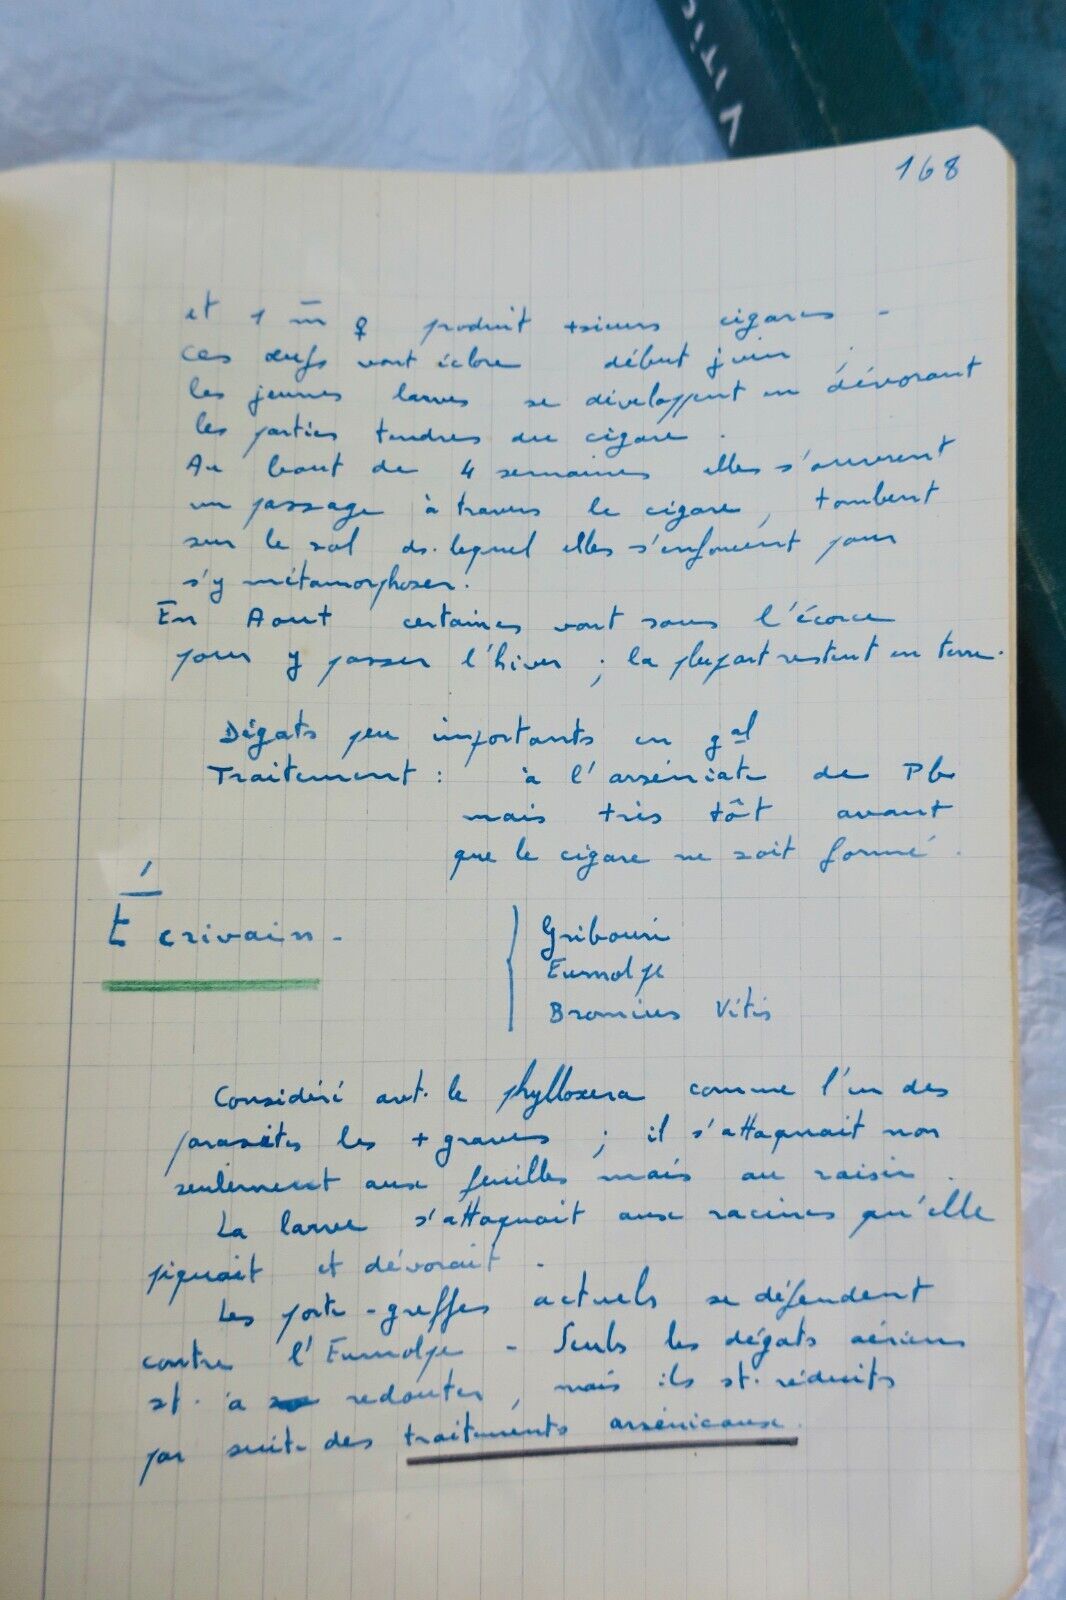 Viti
168
et 1 m̅ ♀ produit +sieurs cigares -
ces œufs vont éclore début juin .
les jeunes larves se développent en dévorant
les parties tendres du cigare .
Au bout de 4 semaines elles s'ouvrent
un passage à travers le cigare, tombent
sur le sol ds. lequel elles s'enfouient pour
s'y métamorphoser.
En Aout certaines vont sous l'écorce
pour y passer l'hiver ; la plupart restent en terre.
Dégats peu importants en gal
Traitement : à l'arséniate de Pb
mais très tôt avant
que le cigare ne soit formé .
Écrivain -
Gribouri
Eumolpe
Bromius Vitis
Considéré avt. le phylloxera comme l'un des
parasites les + graves ; il s'attaquait non
seulement aux feuilles mais au raisin .
La larve s'attaquait aux racines qu'elle
piquait et dévorait .
Les porte-greffes actuels se défendent
contre l'Eumolpe - Seuls les dégats aériens
st. à redouter, mais ils st. réduits
par suite des traitements arsénicaux.